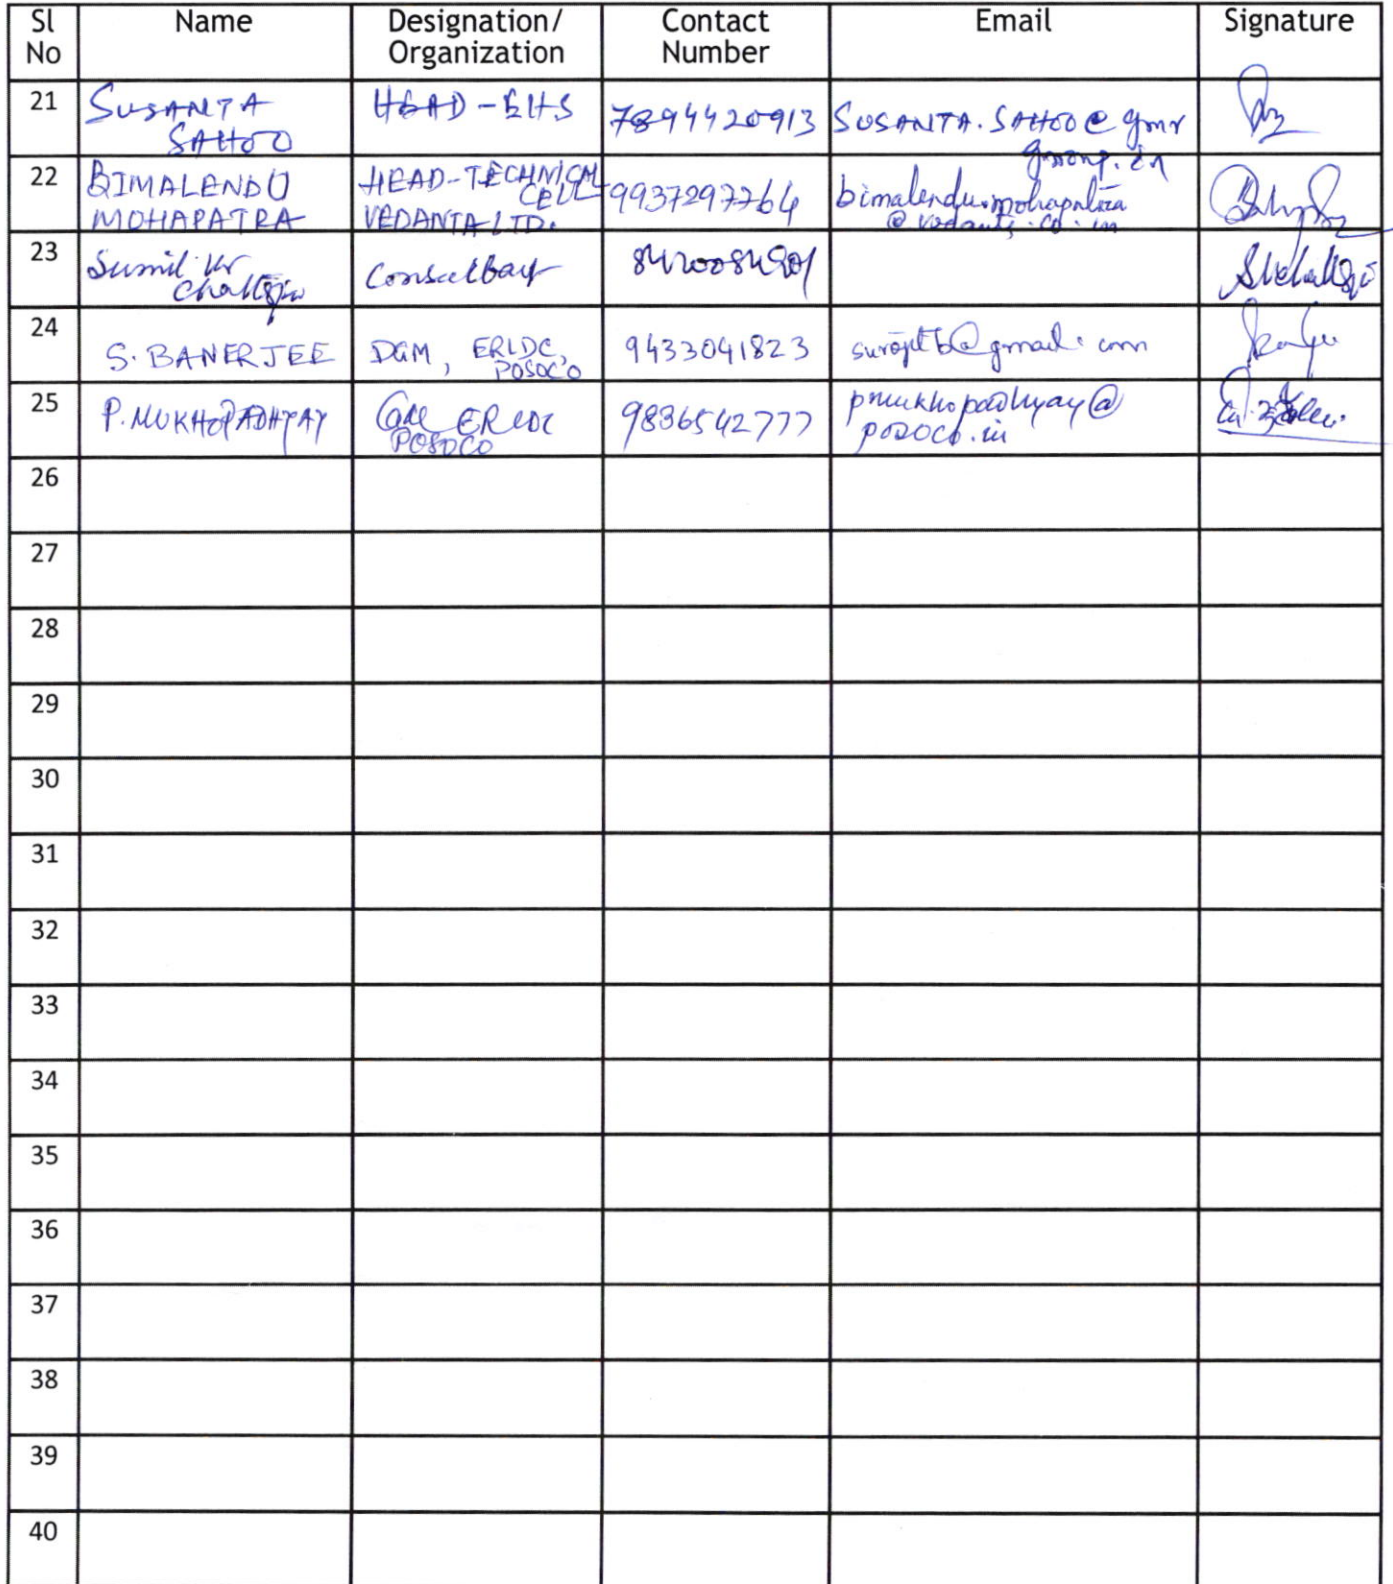 Sl No Name Designation/ Organization Contact Number Email Signature
21 SUSANTA SAHOO HEAD - EHS 7894420913 SUSANTA.SAHOO@gmrgroup.in
22 BIMALENDU MOHAPATRA HEAD-TECHNICAL CELL VEDANTA LTD. 9937297764 bimalendu.mohapatra@vedanta.co.in
23 Sunil Kr Consultant
24 S. BANERJEE DGM, ERLDC, POSOCO 9433041823 surojitb@gmail.com
25 P. MUKHOPADHYAY GM ERLDC POSOCO 9836542777 pmukhopadhyay@posoco.in
26
27
28
29
30
31
32
33
34
35
36
37
38
39
40